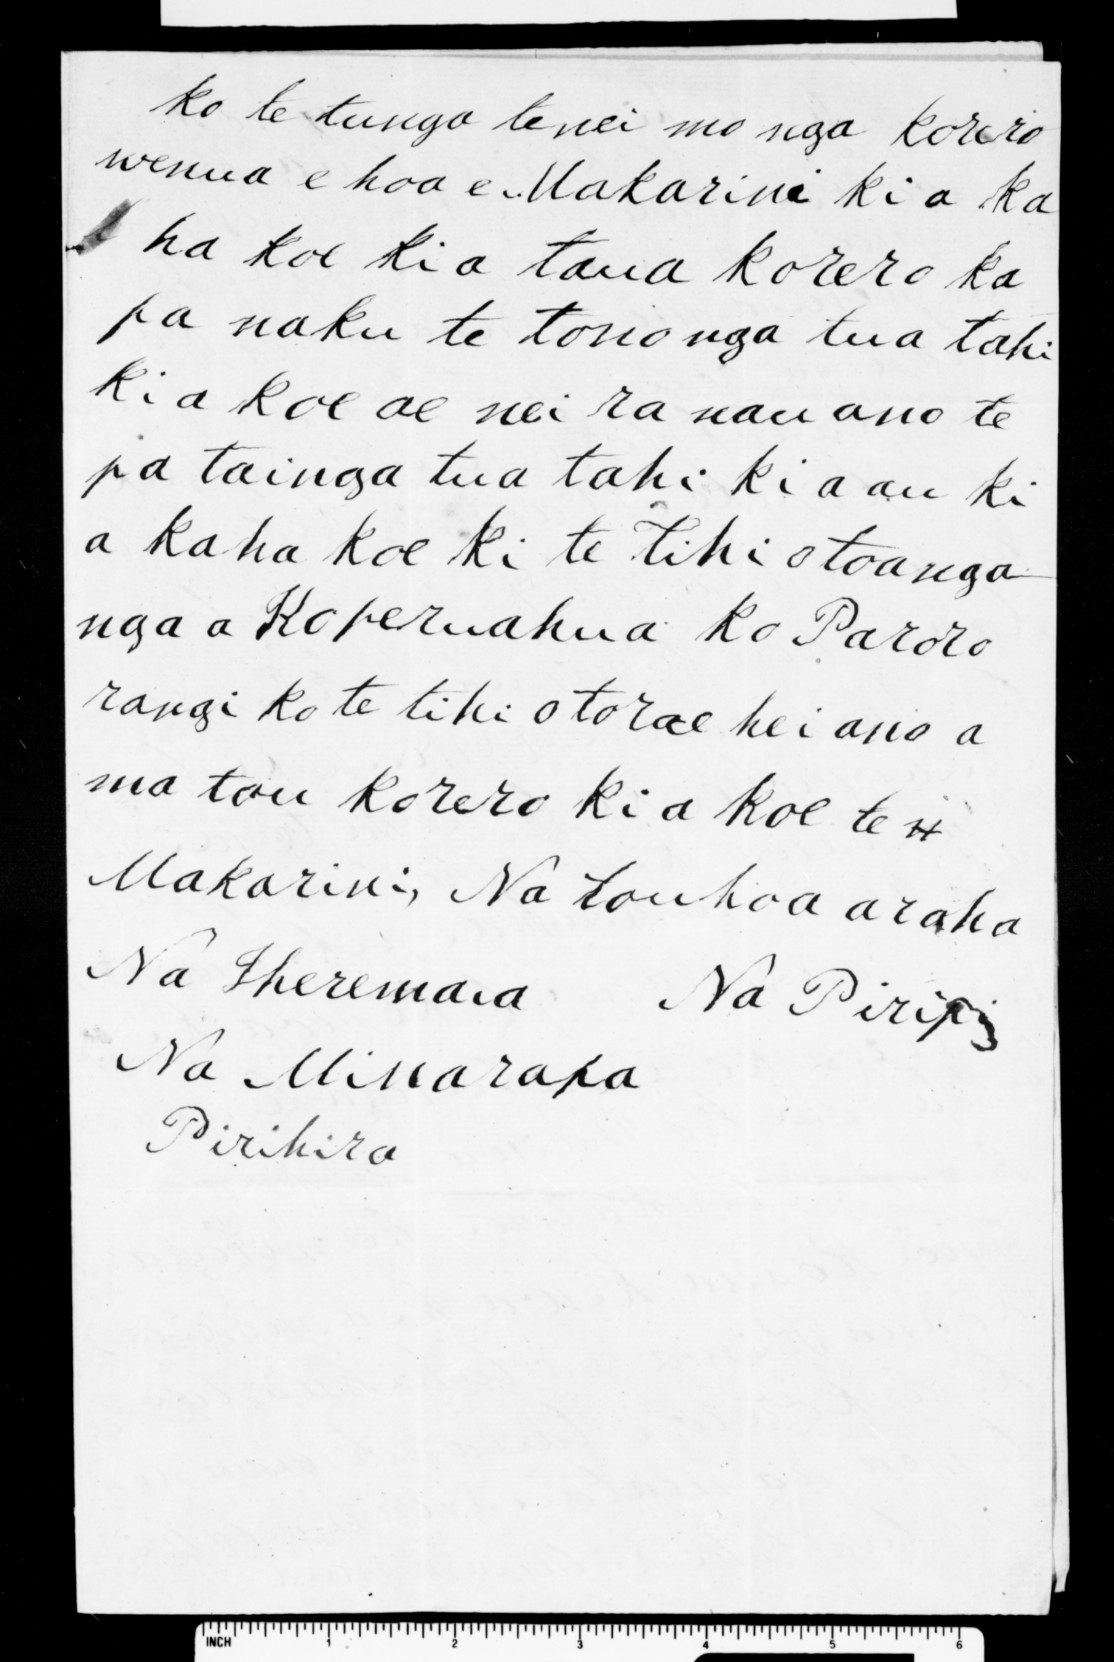 ko te tunga tenei mo nga korero
wenua e hoa e Makarini ki a ka
ha koe ki a taua korero ka
pa naku te tono nga tua tahi
ki a koe ae nei ra nau ano te
pa tainga tua tahi ki a au ki
a kaha koe ki te tihi o toanga
nga a Koperuahua ko Paroro
rangi ko te tihi o torae hei ano a
ma tou korero ki a koe te
Makarini, Na tou hoa araha
Na Iheremaia Na Piripi
Na Minarapa
Pirihira
INCH 1 2 3 4 5 6